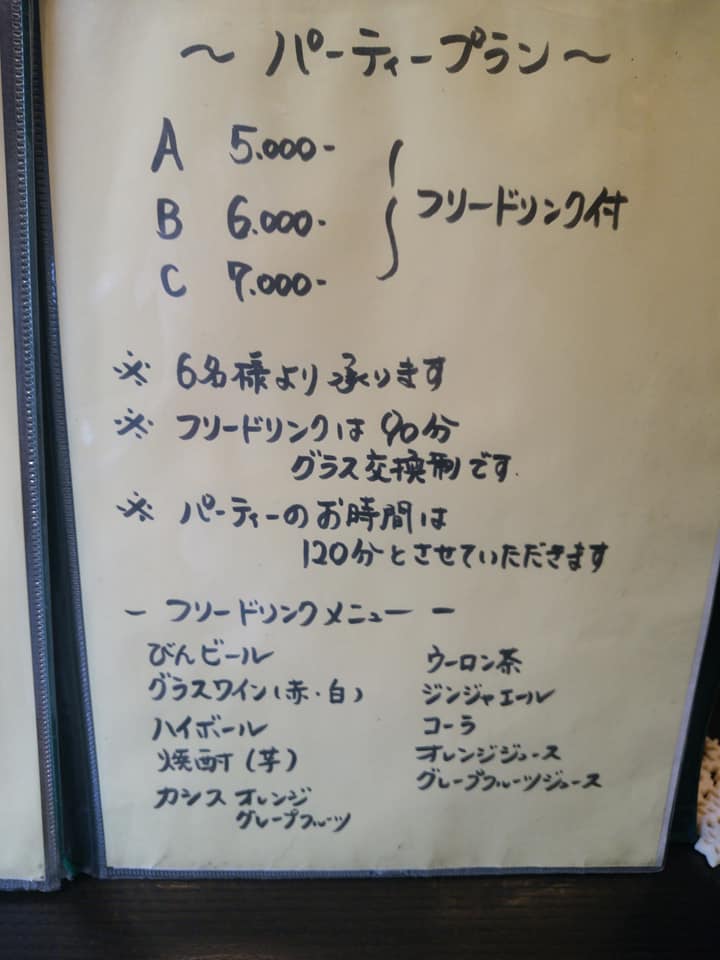 ～ パーティープラン ～
A 5.000-
B 6.000-
C 7.000-
フリードリンク付
※ 6名様より承ります
※ フリードリンクは 90分
グラス交換制です.
※ パーティーのお時間は
120分とさせていただきます
- フリードリンクメニュー -
びんビール
グラスワイン(赤・白)
ハイボール
焼酎(芋)
カシス オレンジ
グレープフルーツ
ウーロン茶
ジンジャエール
コーラ
オレンジジュース
グレープフルーツジュース